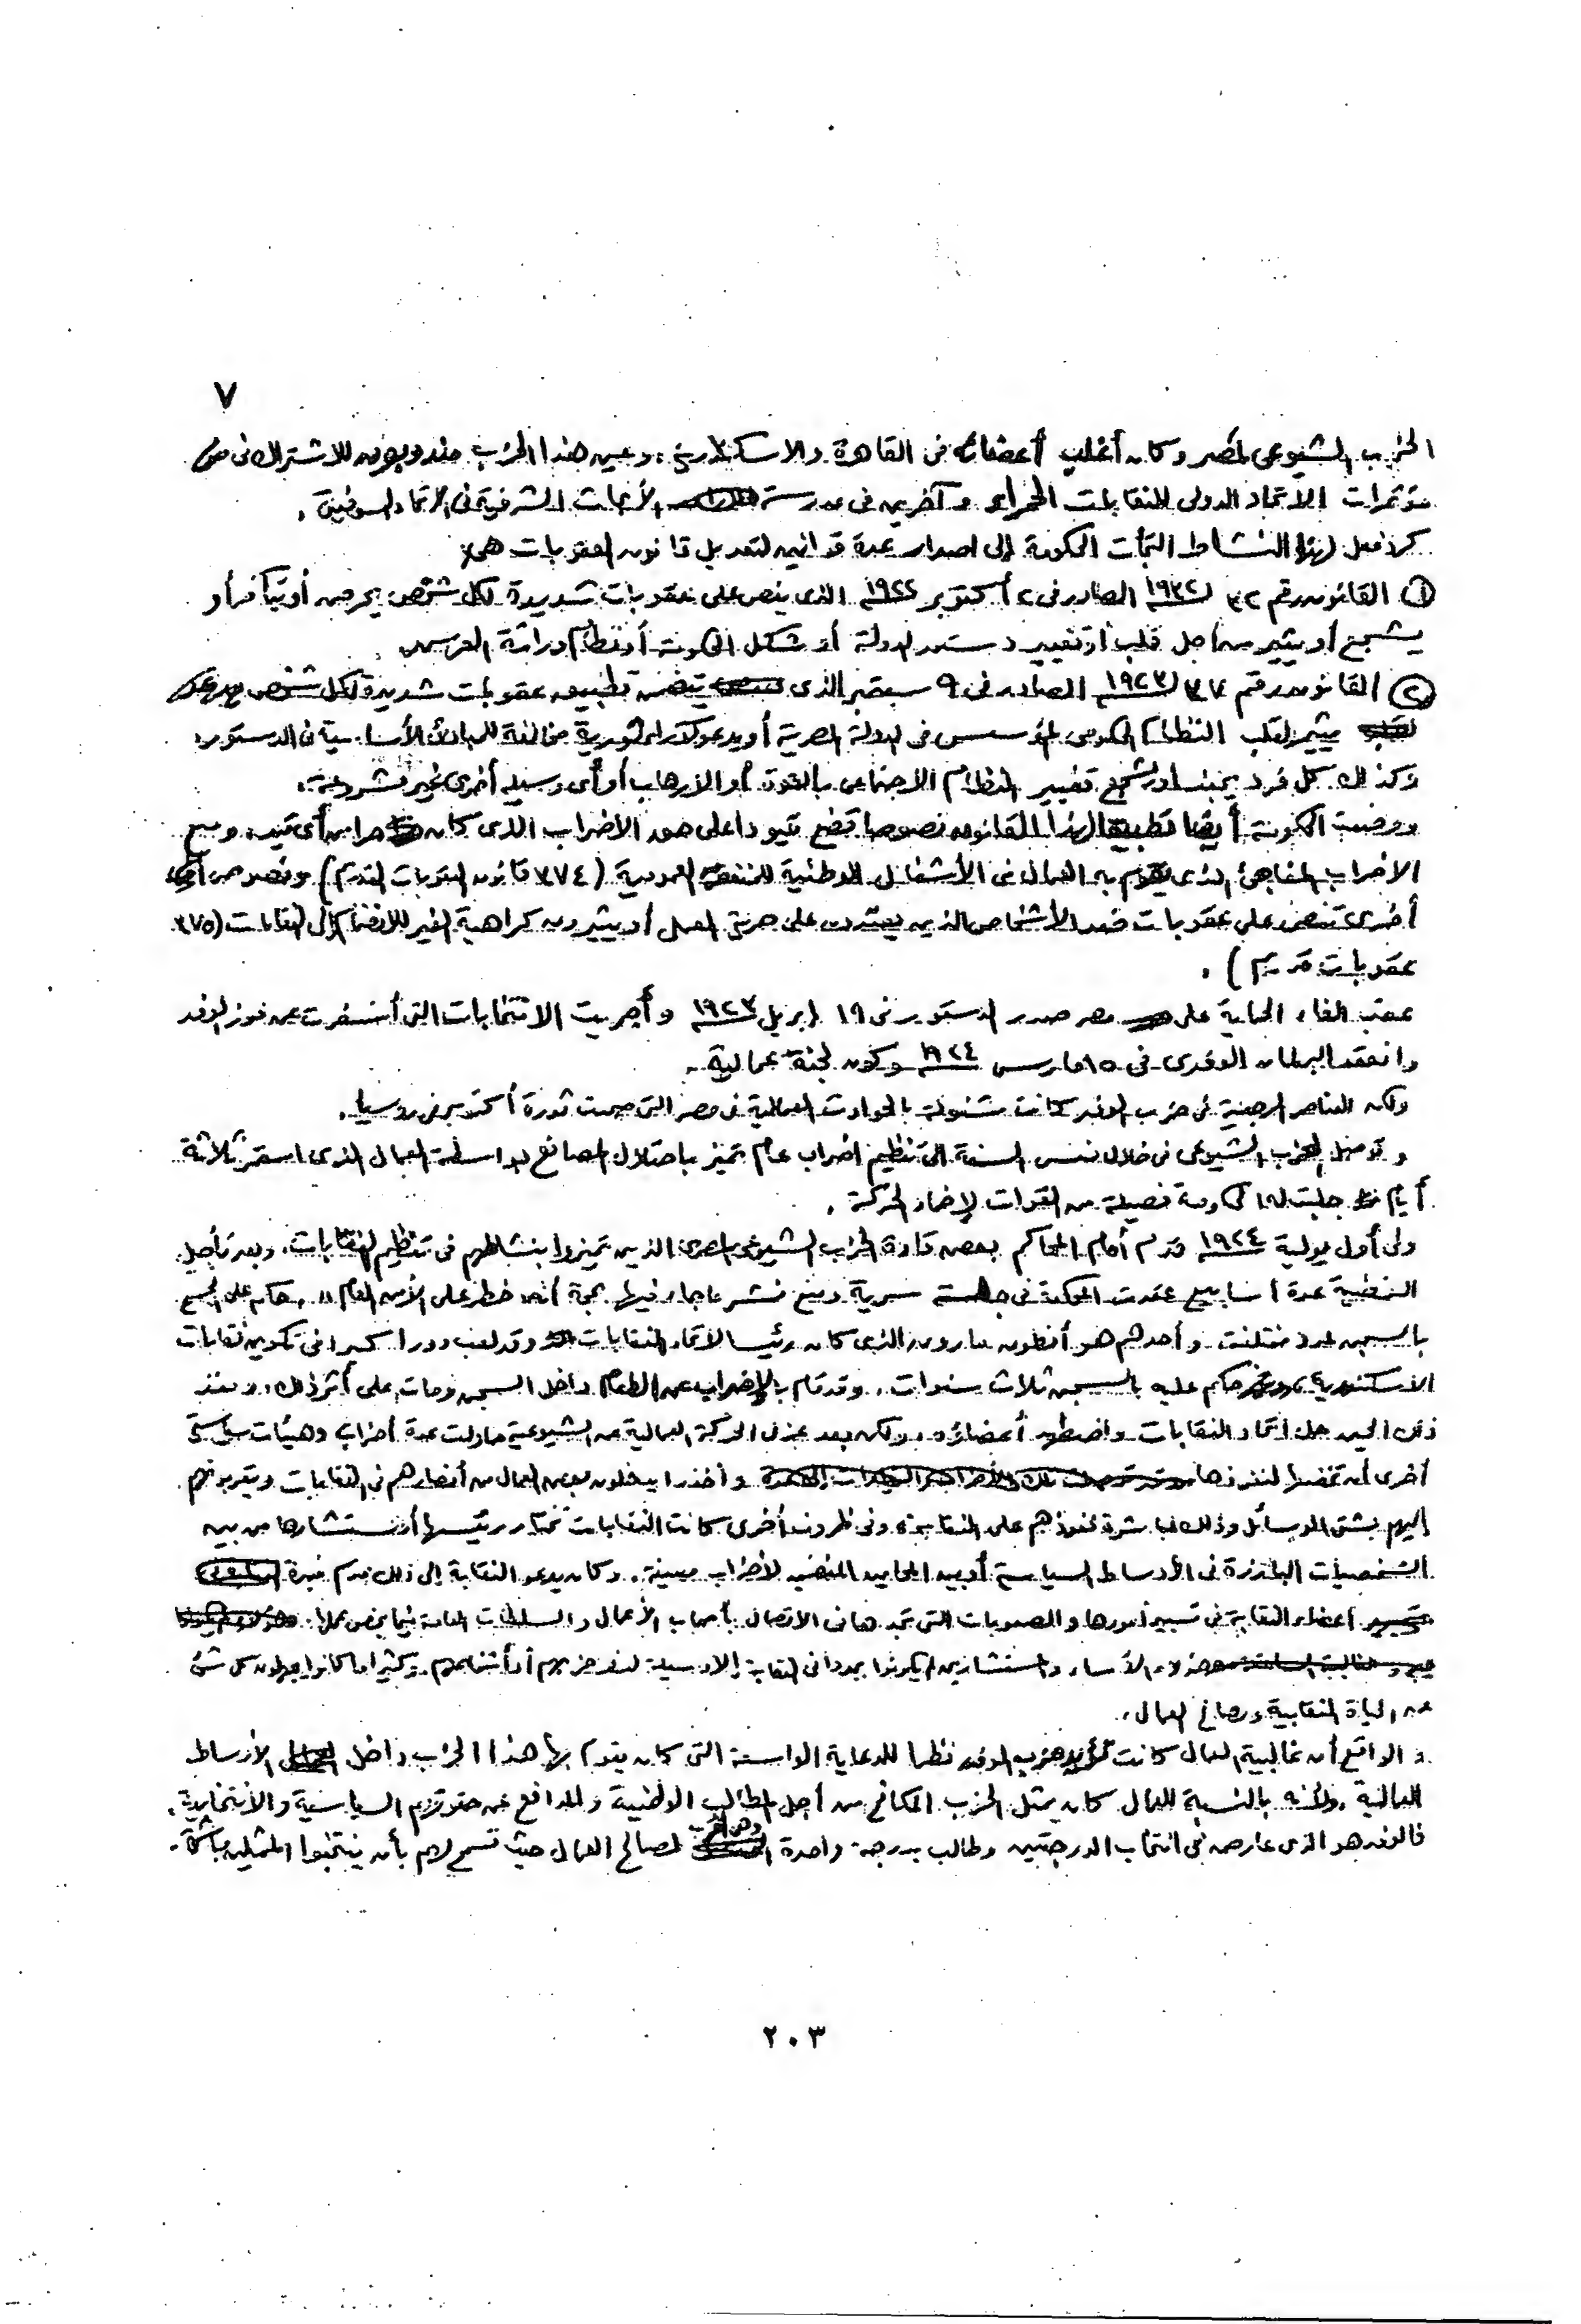 ٧
الحزب الشيوعى لمصر وكان أغلب أعضائه فى القاهرة والاسكندرية، وعين هذا الحزب مندوبون للاشتراك فى
مؤتمرات الاتحاد الدولى للنقابات الحمراء وآخرين فى مدرسة الأبحاث الشرقية فى الاتحاد السوفيتى.
كرد فعل لهذا النشاط التجأت الحكومة إلى اصدار عدة قوانين لتعديل قانون العقوبات هى:
① القانون رقم ٣٢ لـ ١٩٢٢ الصادر فى ٢ أكتوبر ١٩٢٢ الذى ينص على عقوبات شديدة لكل شخص يحرض أو يتآمر أو
يشجع أو يثير من أجل قلب أو تغيير دستور الدولة أو شكل الحكومة أو نظام وراثة العرش.
② القانون رقم ٣٧ لـ ١٩٢٣ الصادر فى ٩ سبتمبر الذى يتضمن تطبيق عقوبات شديدة لكل شخص
يثير لقلب النظام الحكومى المؤسس فى الدولة المصرية أو يدعو لأفكار ثورية مخالفة للمبادئ الأساسية فى الدستور،
وكذلك كل فرد يحبذ أو يشجع تغيير النظام الاجتماعى بالقوة أو الارهاب أو أى وسيلة أخرى غير مشروعة.
ووضعت الحكومة أيضا تطبيقا لهذا القانون نصوصا تضع قيودا على حق الاضراب الذى كان حرا من أى قيد، ومنع
الاضراب المفاجئ الذى يقوم به العمال فى الأشغال الوطنية للمنفعة العمومية (٣٧٤ قانون العقوبات القديم) ونصوص
أخرى تنص على عقوبات ضد الأشخاص الذين يعتدون على حرية العمل أو يثيرون كراهية الغير للانضمام إلى النقابات (٣٧٥
عقوبات قديم).
عقب الغاء الحماية على مصر صدر الدستور فى ١٩ ابريل ١٩٢٣ وأجريت الانتخابات التى أسفرت عن فوز الوفد
وانعقد البرلمان الوفدى فى ١٥ مارس ١٩٢٤ وكون لجنة عمالية.
ولكن العناصر الرجعية فى حزب الوفد كانت مشغولة بالحوادث العمالية فى مصر التى صحبت ثورة أكتوبر فى روسيا.
وتوصل الحزب الشيوعى فى خلال نفس السنة الى تنظيم اضراب عام تميز باحتلال المصانع بواسطة العمال الذى استمر ثلاثة
أيام جلبت لها الحكومة فصيلة من القوات لإخماد الحركة.
وفى أول يولية ١٩٢٤ قدم أمام المحاكم بعض قادة الحزب الشيوعى المصرى الذين تميزوا بنشاطهم فى تنظيم النقابات. وبعد تأجيل
القضية عدة أسابيع عقدت المحكمة فى جلسة سرية ومنع نشر ما جاء فيها بحجة أنه خطر على الأمن العام، حكم على الجميع
بالسجن لمدد مختلفة وأحدهم هو أنطون مارون الذى كان رئيسا لاتحاد النقابات وقد لعب دورا كبيرا فى تكوين نقابات
الاسكندرية، وحكم عليه بالسجن ثلاث سنوات. وقد قام بالإضراب عن الطعام داخل السجن ومات على أثر ذلك، ومنذ
ذلك الحين حل اتحاد النقابات واضطهد أعضاؤه، ولكن بعد عزل الحركة العمالية عن الشيوعية حاولت عدة أحزاب وهيئات سياسية
أخرى أن تخضعها لنفوذها وأخذوا يدخلون بعض العمال من أنصارهم فى النقابات ويقربونهم
إليهم بشتى الوسائل وذلك لمباشرة نفوذهم على النقابة، وفى ظروف أخرى كانت النقابات تختار رئيسها أو مستشارها من بين
الشخصيات البارزة فى الأوساط السياسية أو بين المحامين المنضمين لأحزاب معينة. وكان يدعو النقابة إلى ذلك عدم خبرة
أعضاء النقابة فى تسيير أمورها والصعوبات التى تجدها فى الاتصال بأصحاب الأعمال والسلطات العامة فيما يخص عملها.
هؤلاء الرؤساء والمستشارين لم يكونوا يجدوا فى النقابة إلا وسيلة لنفوذ حزبهم أو أشخاصهم، وكثيرا ما كانوا يجهلون كل شئ
عن الحياة النقابية ومصالح العمال.
والواقع أن غالبية العمال كانت تؤيد حزب الوفد نظرا للدعاية الواسعة التى كان يقوم بها هذا الحزب داخل الأوساط
العمالية، ولأنه بالنسبة للعمال كان يمثل الحزب المكافح من أجل المطالب الوطنية والمدافع عن حقوقهم السياسية والانتخابية،
فالوفد هو الذى عارض فى انتخاب الدرجتين وطالب بدرجة واحدة لمصالح العمال حيث تسمح لهم بأن ينتخبوا الممثلين مباشرة.
٢٠٣